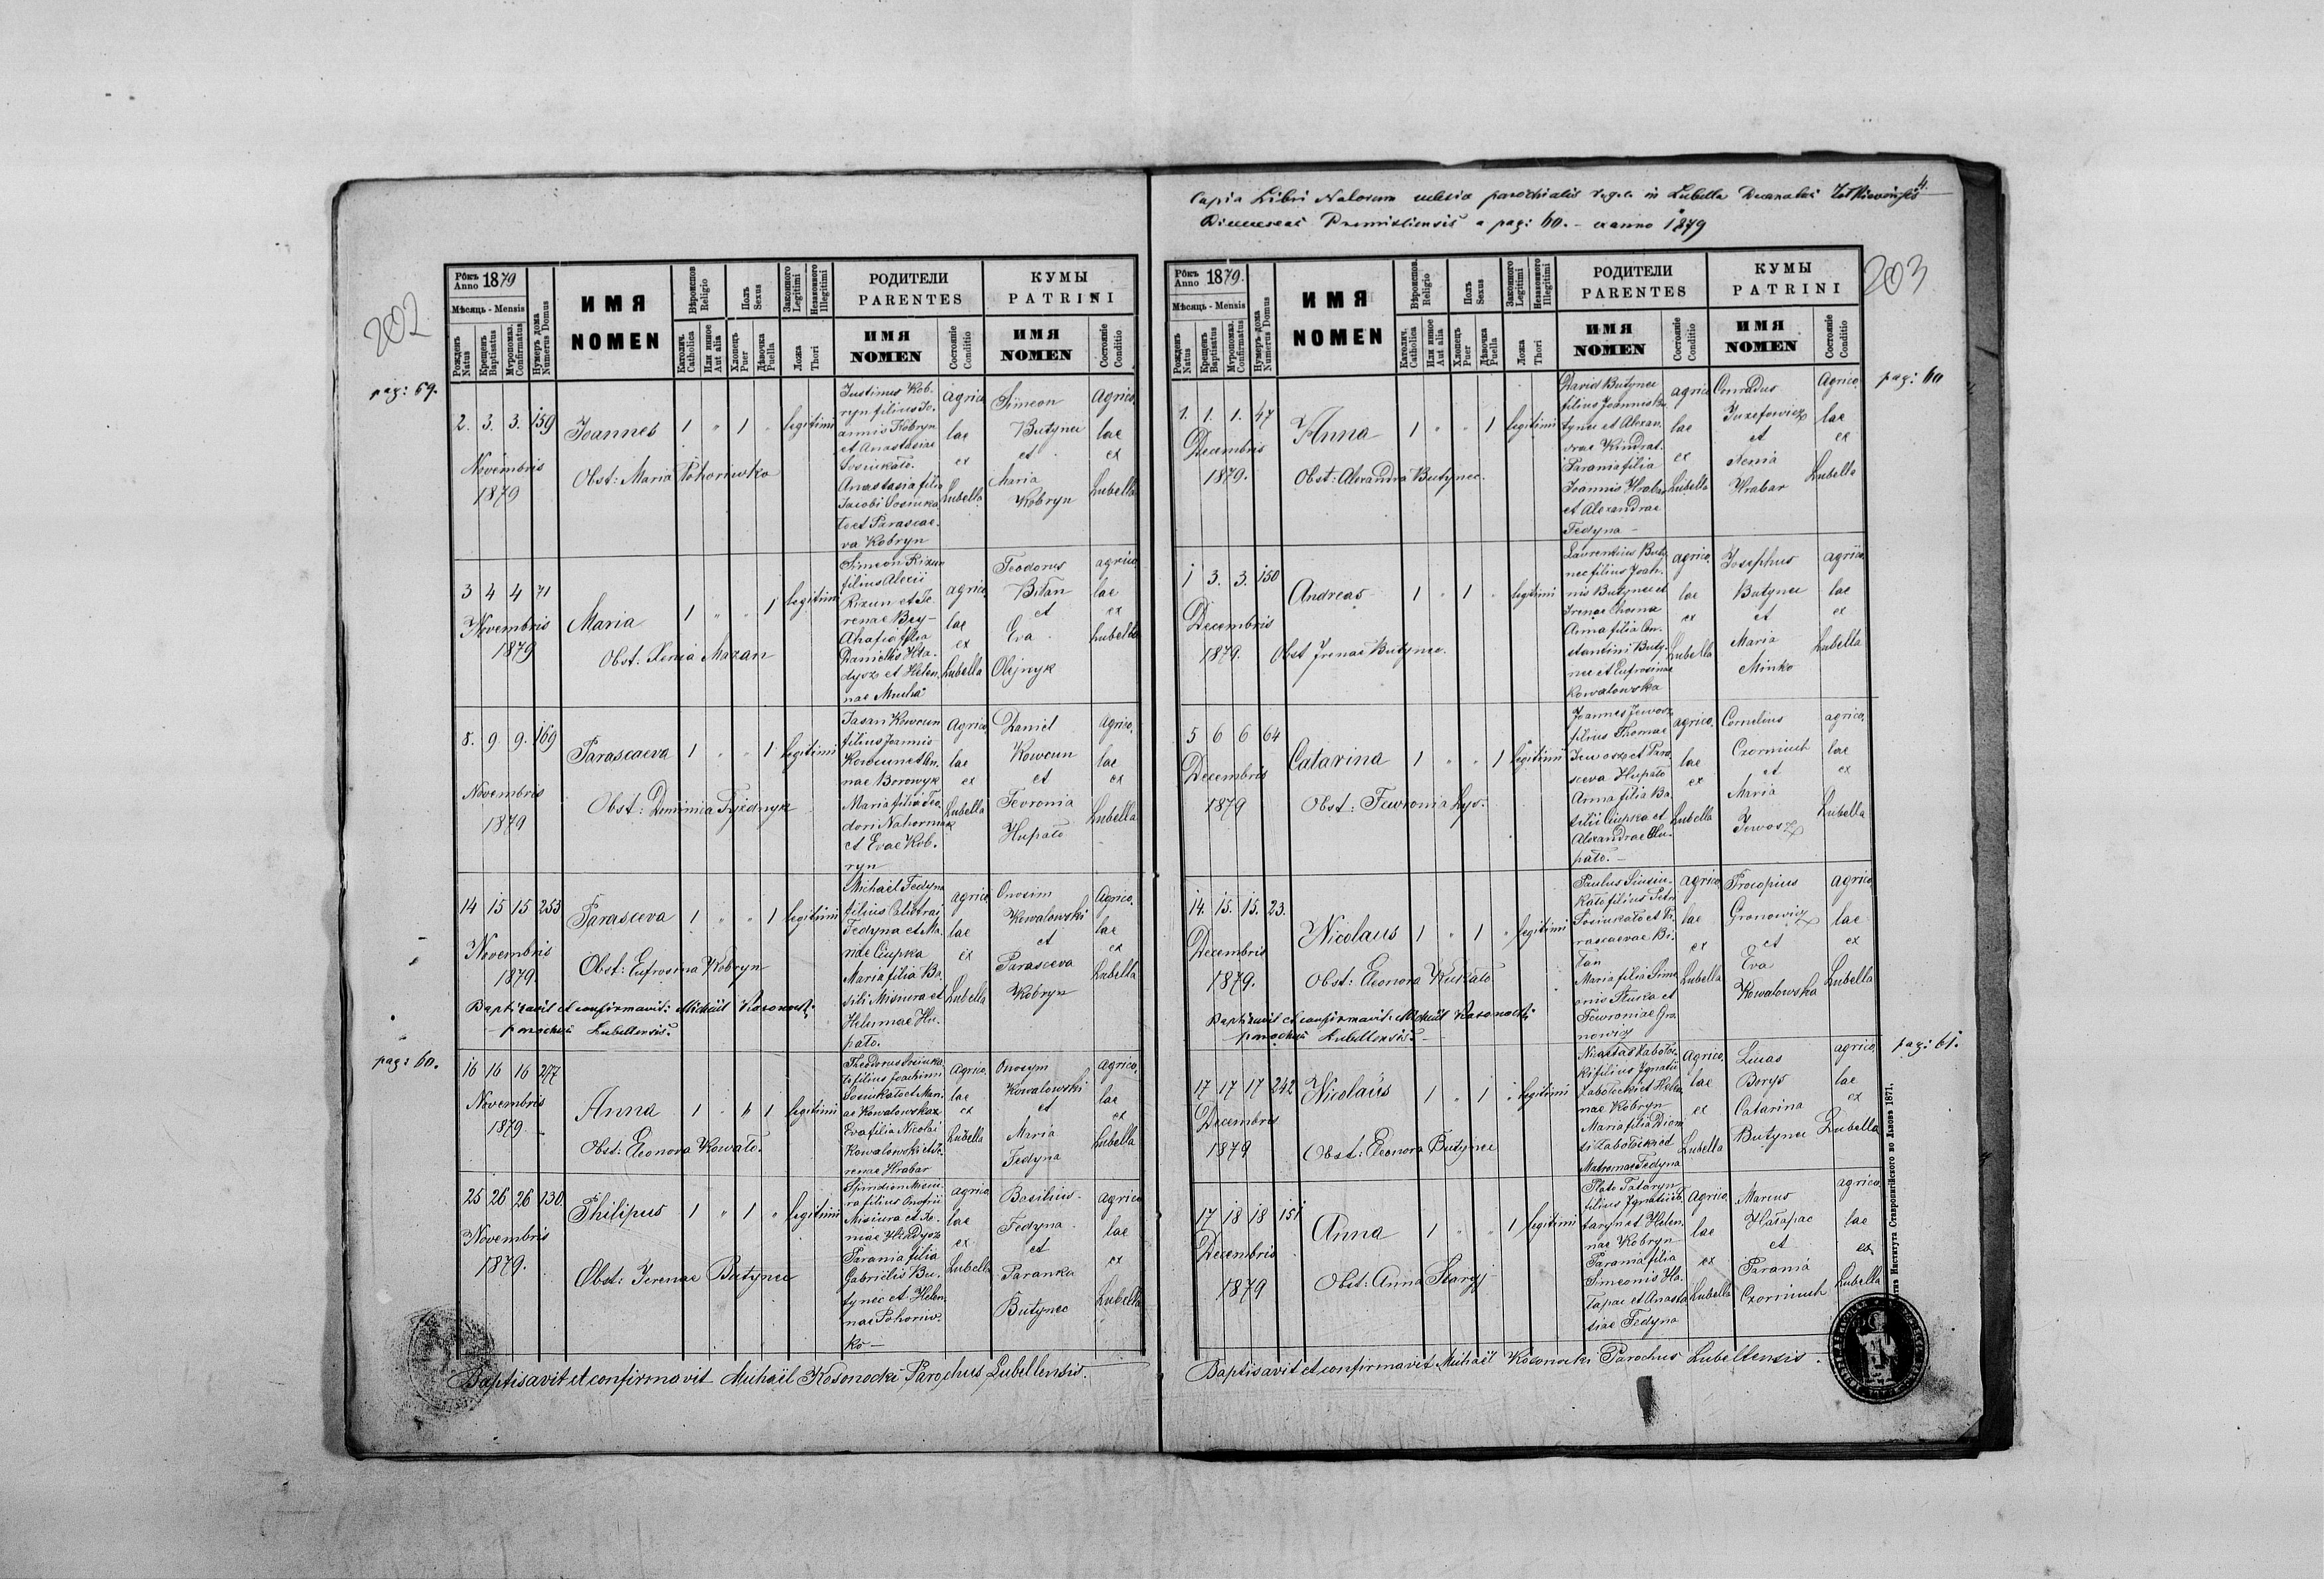 202
pag: 59.
Рôкъ
Anno 1879
Мѣсяць - Mensis
Рожденъ
Natus
Крещенъ
Baptisatus
Мѵропомаз.
Confirmatus
Нумеръ дома
Numerus Domus
ИМЯ
NOMEN
Вѣроисповѣд.
Religio
Католич.
Catholica
Или иное
Aut alia
Полъ
Sexus
Хлопецъ
Puer
Дѣвочка
Puella
Законного
Legitimi
Незаконного
Illegitimi
Ложа
Thori
РОДИТЕЛИ
PARENTES
ИМЯ
NOMEN
Состояніе
Conditio
КУМЫ
PATRINI
ИМЯ
NOMEN
Состояніе
Conditio
2. 3. 3. 159
Novembris
1879
Joannes 1 " 1 " legitimi
Obst: Maria Pohoriwko
Justinus Kob-
ryn filius Jo-
annis Kobryn
et Anastasiae
Sosiukało.
Anastasia filia
Jacobi Sosiuka
ło et Parascae-
va Kobryn
agrico
lae
ex
Lubella
Simeon
Butynec
et
Maria
Kobryn
agrico.
lae
ex
Lubella
3 4 4 71
Novembris
1879
Maria 1 " " 1 legitimi
Obst: Xenia Mazan
Simeon Rizun
filius Alecii
Rizun et Je-
renae Bey-
Ahafia filia
Danielis Hła-
dysz et Hele-
nae Mucha
agrico
lae
ex
Lubella
Teodorus
Biłan
et
Eva
Olijnyk
agrico.
lae
ex
Lubella
8. 9 9. 169
Novembris
1879
Parascaeva 1 " " 1 legitimi
Obst: Dominia Tyżdnyk
Jasan Kowcun
filius Joannis
Kowcun et An-
nae Borowyk
Maria filia Teo
dori Nahorniak
et Evae Kob-
ryn
agrico.
lae
ex
Lubella
Daniel
Kowcun
et
Fevronia
Hupało
agrico.
lae
ex
Lubella
14 15 15 253
Novembris
1879.
Parasceva 1 " " 1 legitimi
Obst: Eufrosina Kobryn
Michael Fedyna
filius Calistrai
Fedyna et Ma-
riae Ciupka
Maria filia Ba-
silii Misiura et
Helenae Hu-
pało.
agrico
lae
ex
Lubella
Onosim
Kowalowski
et
Parasceva
Kobryn
agrico.
lae
ex
Lubella
Baptisavit et confirmavit: Michaël Kosonocki
parochus Lubellensis.
pag: 60.
16 16 16 277
Novembris
1879
Anna 1 " 1 legitimi
Obst: Eleonora Kowało.
Theodorus Sosiuka-
ło filius Joachimi
Sosiukało et Mari-
ae Kowalowska
Eva filia Nicolai
Kowalowski et Je-
renae Hrabar
agrico.
lae
ex
Lubella
Onosym
Kowalowski
et
Maria
Fedyna
agrico.
lae
ex
Lubella
25 26 26 130.
Novembris
1879.
Philipus 1 " 1 " legitimi
Obst: Jerenae Butynec
Spiridion Misiu-
ra filius Onufrii
Misiura et Xe-
niae Hładysz
Parania filia
Gabrielis Bu-
tynec et Hele-
nae Pohoriw-
ko —
agrico.
lae
ex
Lubella
Basilius
Fedyna
et
Paranka
Butynec
agrico
lae
ex
Lubella
Baptisavit et confirmavit Michaël Kosonocki Parochus Lubellensis.
4
Copia Libri Natorum ecclesia parochialis in Lubella Decanatus Żołkiewensis
Dioeceseos Premisliensis a pag: 60. - ex anno 1879
203
pag: 60
Рôкъ
Anno 1879.
Мѣсяць - Mensis
Рожденъ
Natus
Крещенъ
Baptisatus
Мѵропомаз.
Confirmatus
Нумеръ дома
Numerus Domus
ИМЯ
NOMEN
Вѣроисповѣд.
Religio
Католич.
Catholica
Или иное
Aut alia
Полъ
Sexus
Хлопецъ
Puer
Дѣвочка
Puella
Законного
Legitimi
Незаконного
Illegitimi
Ложа
Thori
РОДИТЕЛИ
PARENTES
ИМЯ
NOMEN
Состояніе
Conditio
КУМЫ
PATRINI
ИМЯ
NOMEN
Состояніе
Conditio
1. 1. 1. 47
Decembris
1879.
Anna 1 " " 1 legitimi
Obst: Alexandra Butynec.
David Butynec
filius Joannis Bu-
tynec et Alexan-
drae Kindrat.
Parania filia
Joannis Hrabar
et Alexandrae
Fedyna —
agrico
lae
ex
Lubella
Conradus
Juzefowicz
et
Xenia
Hrabar
agrico.
lae
ex
Lubella
1 3. 3. 150
Decembris
1879.
Andreas 1 " 1 " legitimi
Obst Irenae Butynec.
Laurentius Buty-
nec filius Joan-
nis Butynec et
Irenae Choma
Anna filia Con-
stantini Buty-
nec et Eufrosinae
Kowalowska
agrico.
lae
ex
Lubella
Josephus
Butynec
et
Maria
Minko
agrico.
lae
ex
Lubella
5 6 6 64
Decembris
1879
Catarina 1 " " 1 legitimi
Obst: Fewronia Lys.
Joannes Jewosz
filius Thomae
Jewosz et Para
sceva Hupało
Anna filia Ba-
silii Ciupka et
Alexandrae Hu-
pało. —
agrico.
lae
ex
Lubella
Cornelius
Czorniuch
et
Maria
Jewosz
agrico.
lae
ex
Lubella
14. 15. 15. 23.
Decembris
1879.
Nicolaus 1 " 1 " legitimi
Obst: Eleonora Kukało
Paulus Siusiu-
kało filius Petri
Sosiukało et Pa-
rascaevae Bi-
łan
Maria filia Sime
onis Pluska et
Fewroniae Gro-
nowicz
agrico
lae
ex
Lubella
Procopius
Gronowicz
et
Eva
Kowalowska
agrico
lae
ex
Lubella
Baptisavit et confirmavit: Michaël Kosonocki
parochus Lubellensis. —
pag: 61.
17 17 17 242
Decembris
1879
Nicolaus 1 " 1 " legitimi
Obst: Eleonora Butynec
Nicetas Zabołoc-
ki filius Ignatii
Zabołocki et Hele-
nae Kobryn
Maria filia Diom
Zabołocki et
Matronae Fedyna
agrico.
lae
ex
Lubella
Lucas
Borys
Catarina
Butynec
agrico.
lae
ex
Lubella
17 18 18 151
Decembris
1879
Anna 1 " " 1 legitimi
Obst: Anna Staryj
Plato Tataryn
filius Ignatii Ta-
taryn et Hele-
nae Kobryn
Parania filia
Simeonis Ha-
łapac et Anasta
siae Fedyna
agrico.
lae
ex
Lubella
Marcus
Hałapac
et
Parania
Czorniuch
agrico.
lae
ex
Lubella
Baptisavit et confirmavit Michaël Kosonocki Parochus Lubellensis.
Института Ставропигійского во Львовѣ 1871.